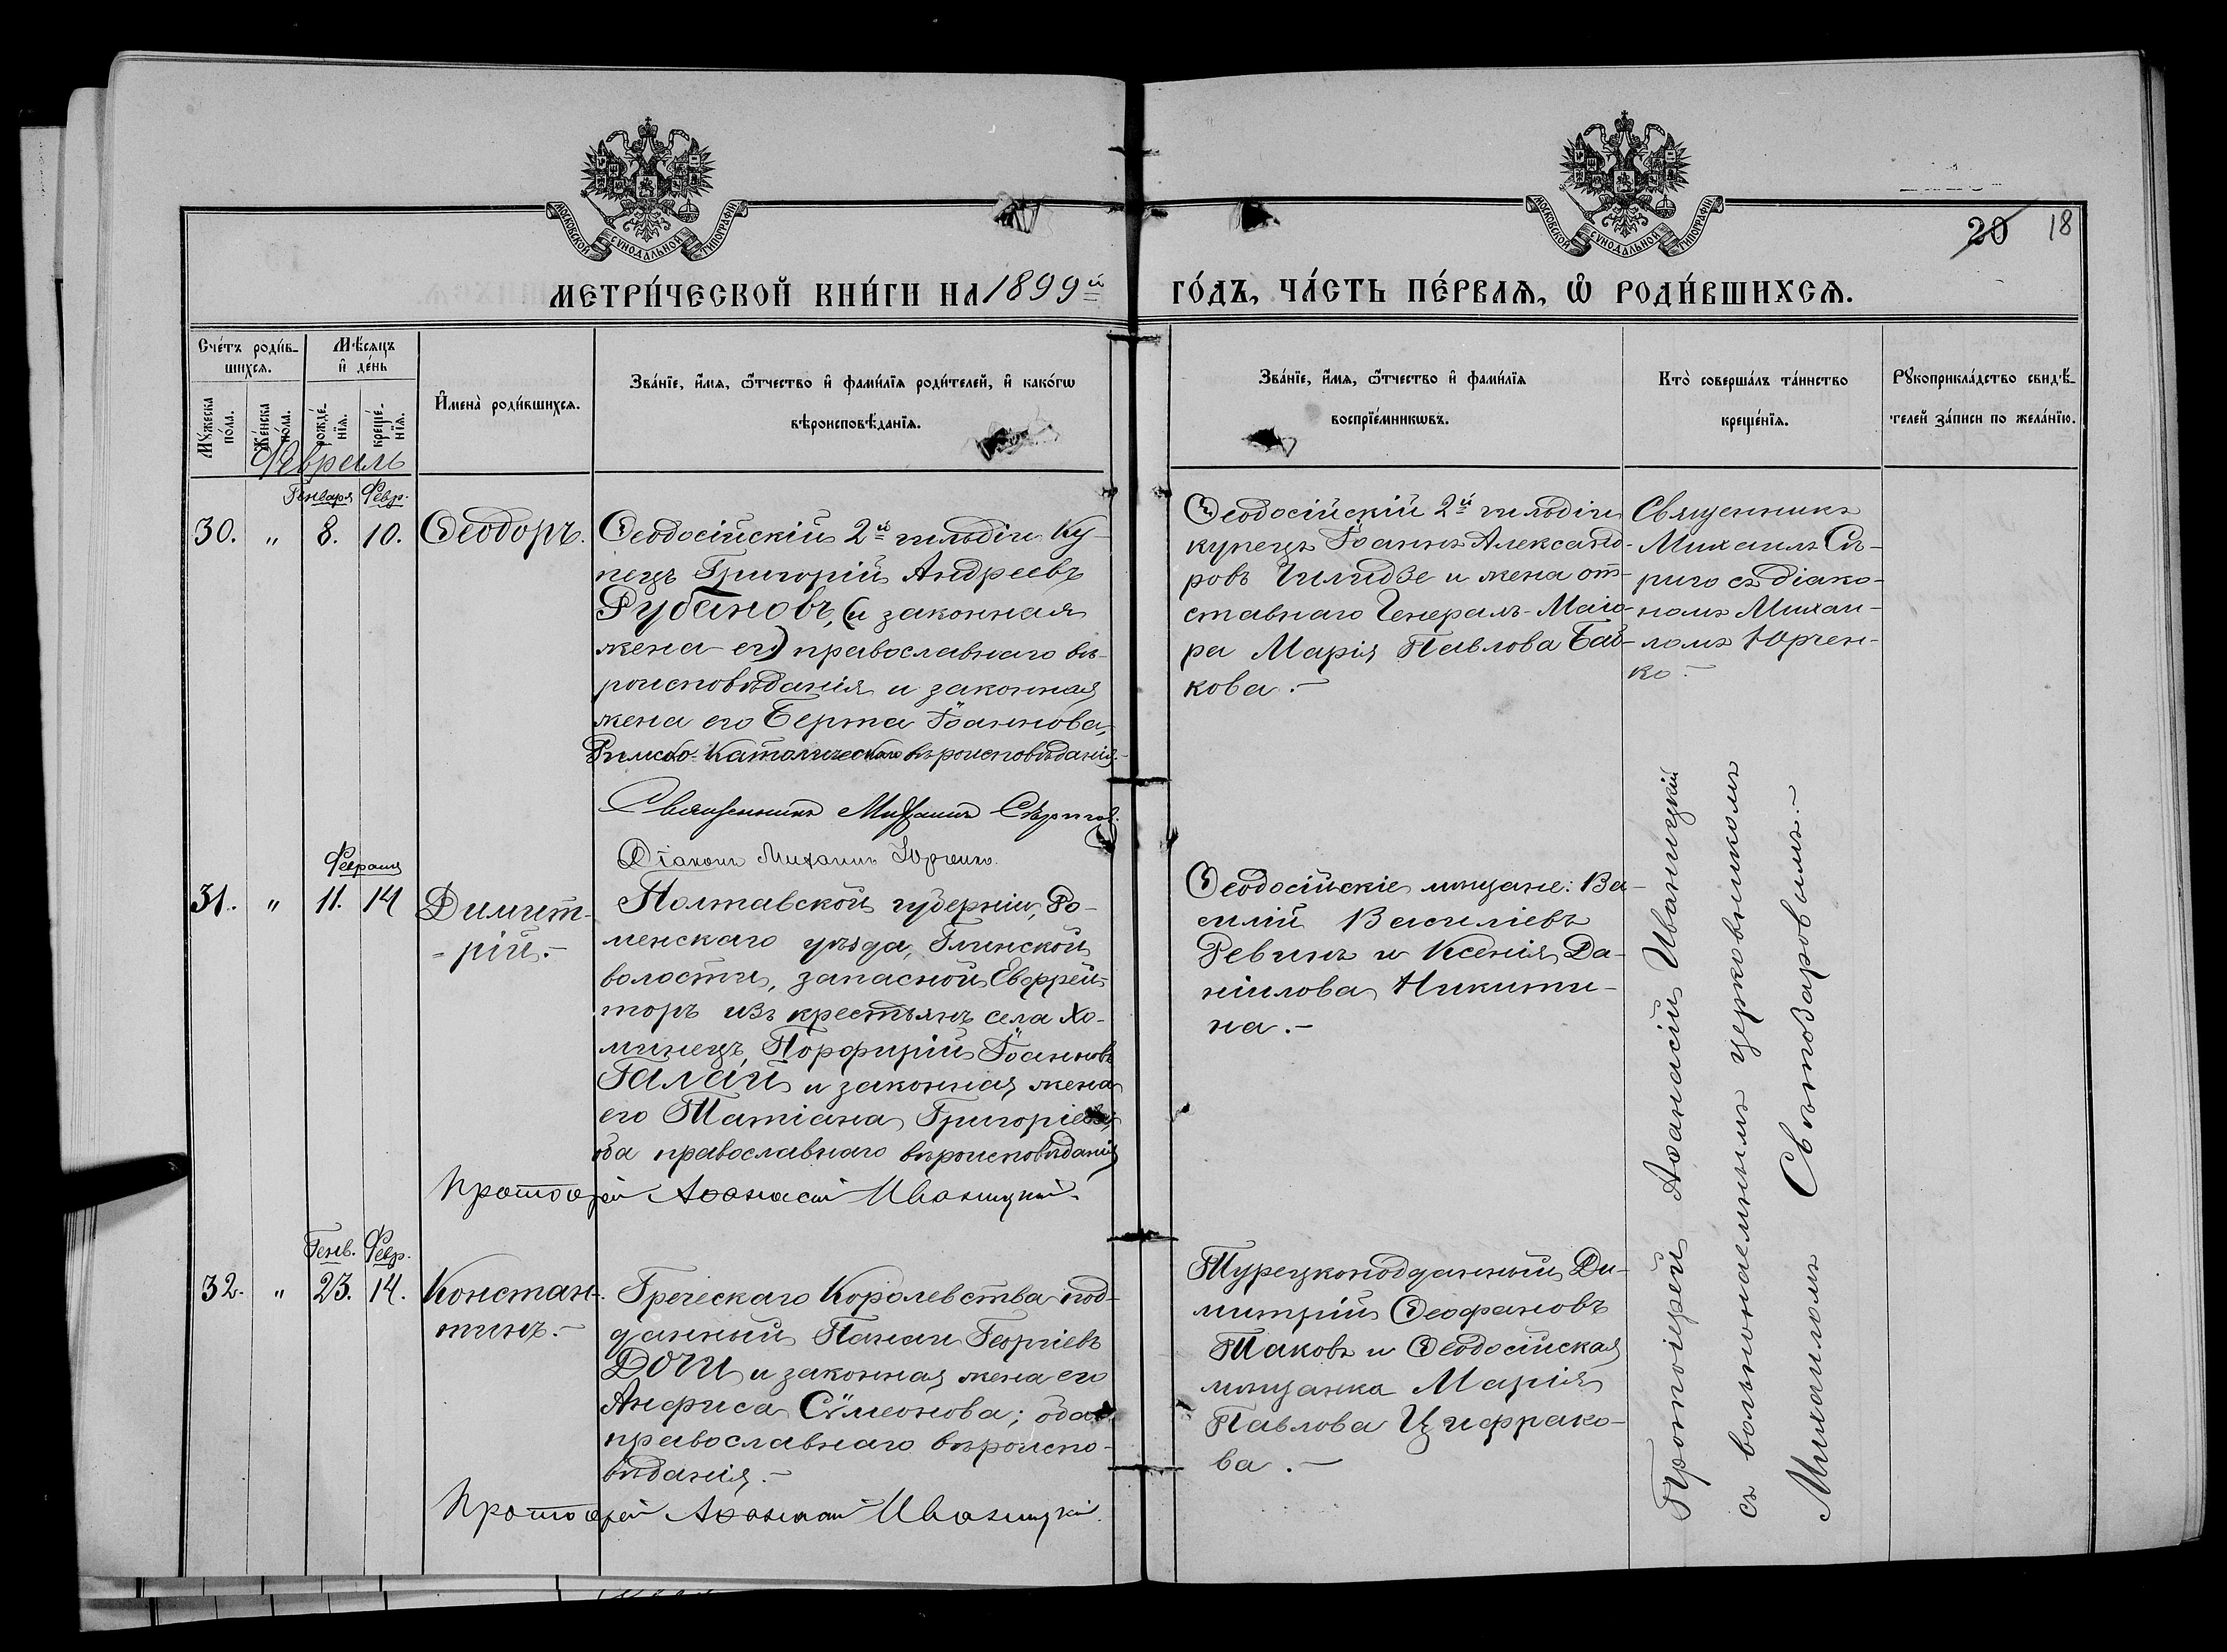 МОСКОВСКОЙ СѴНОДАЛЬНОЙ ТИПОГРАФІИ
МОСКОВСКОЙ СѴНОДАЛЬНОЙ ТИПОГРАФІИ
20 18
МЕТРИ́ЧЕСКОЙ КНИ́ГИ НА 1899й ГО́ДЪ, ЧА́СТЬ ПЕ́РВАѦ, Ѡ РОДИ́ВШИХСѦ.
Сче́тъ роди́в-
шихсѧ.
Мѣ́сѧцъ
и҆ де́нь
Мꙋ́жеска
по́ла.
Же́нска
по́ла.
рожде́-
нїѧ.
креще́-
нїѧ.
И҆мена̀ роди́вшихсѧ.
Зва́нїе, и҆́мѧ, ѻ҆́тчество и҆ фами́лїѧ роди́телей, и҆ како́гѡ
вѣроисповѣ́данїѧ.
Зва́нїе, и҆́мѧ, ѻ҆́тчество и҆ фами́лїѧ
воспрїе́мникѡвъ.
Кто̀ соверша́лъ та́инство
креще́нїѧ.
Рꙋкоприкла́дство свидѣ́-
телей за́писи по жела́нїю.
Февраль
Генваря Февр.
30. " 8. 10. Ѳеодоръ.
Ѳеодосійскій 2й гильдіи Ку-
пецъ Григорій Андреевъ
Рубановъ, (и законная
жена его) православнаго вѣ-
роисповѣданія и законная
жена его Берта Іоаннова,
Римско-Католическаго вѣроисповѣданія.-
Священникъ Михаилъ Сѣриго
Діаконъ Михаилъ Юрченко.
Ѳеодосійскій 2й гильдіи
купецъ Іоаннъ Александ-
ровъ Чилидзе и жена от-
ставнаго Генералъ-Маіо-
ра Марія Павлова Бав-
кова.-
Священникъ
Михаилъ Сѣ-
риго съ діако-
номъ Михаи-
ломъ Юрчен-
ко.-
Февраля
31. " 11. 14 Димит-
-рій.-
Полтавской губерніи, Ро-
менскаго уѣзда, Глинской
волости, запасной Ефрей-
торъ изъ крестьянъ села Хо-
минецъ, Порфирій Іоанновъ
Галай и законная жена
его Татіана Григоріева,
оба православнаго вѣроисповѣданія
Протоіерей Аѳанасій Иваницкій.
Ѳеодосійскіе мѣщане: Ва-
силій Василіевъ
Ревинъ и Ксенія Да-
ніилова Никити-
на.-
Протоіерей Аѳанасій Иваницкій
съ вольнонаемнымъ церковникомъ
Михаиломъ Свѣтозаровымъ.-
Генв. Февр.
32. " 23. 14. Констан-
тинъ.-
Греческаго Королевства под-
данный Панаи Георгіевъ
Дочи и законная жена его
Анфиса Сѵмеонова; оба
православнаго вѣроиспо-
вѣданія.-
Протоіерей Аѳанасій Иваницкій.
Турецкоподданный Ди-
митрій Ѳеофановъ
Таковъ и Ѳеодосійская
мѣщанка Марія
Павлова Цифрако-
ва.-